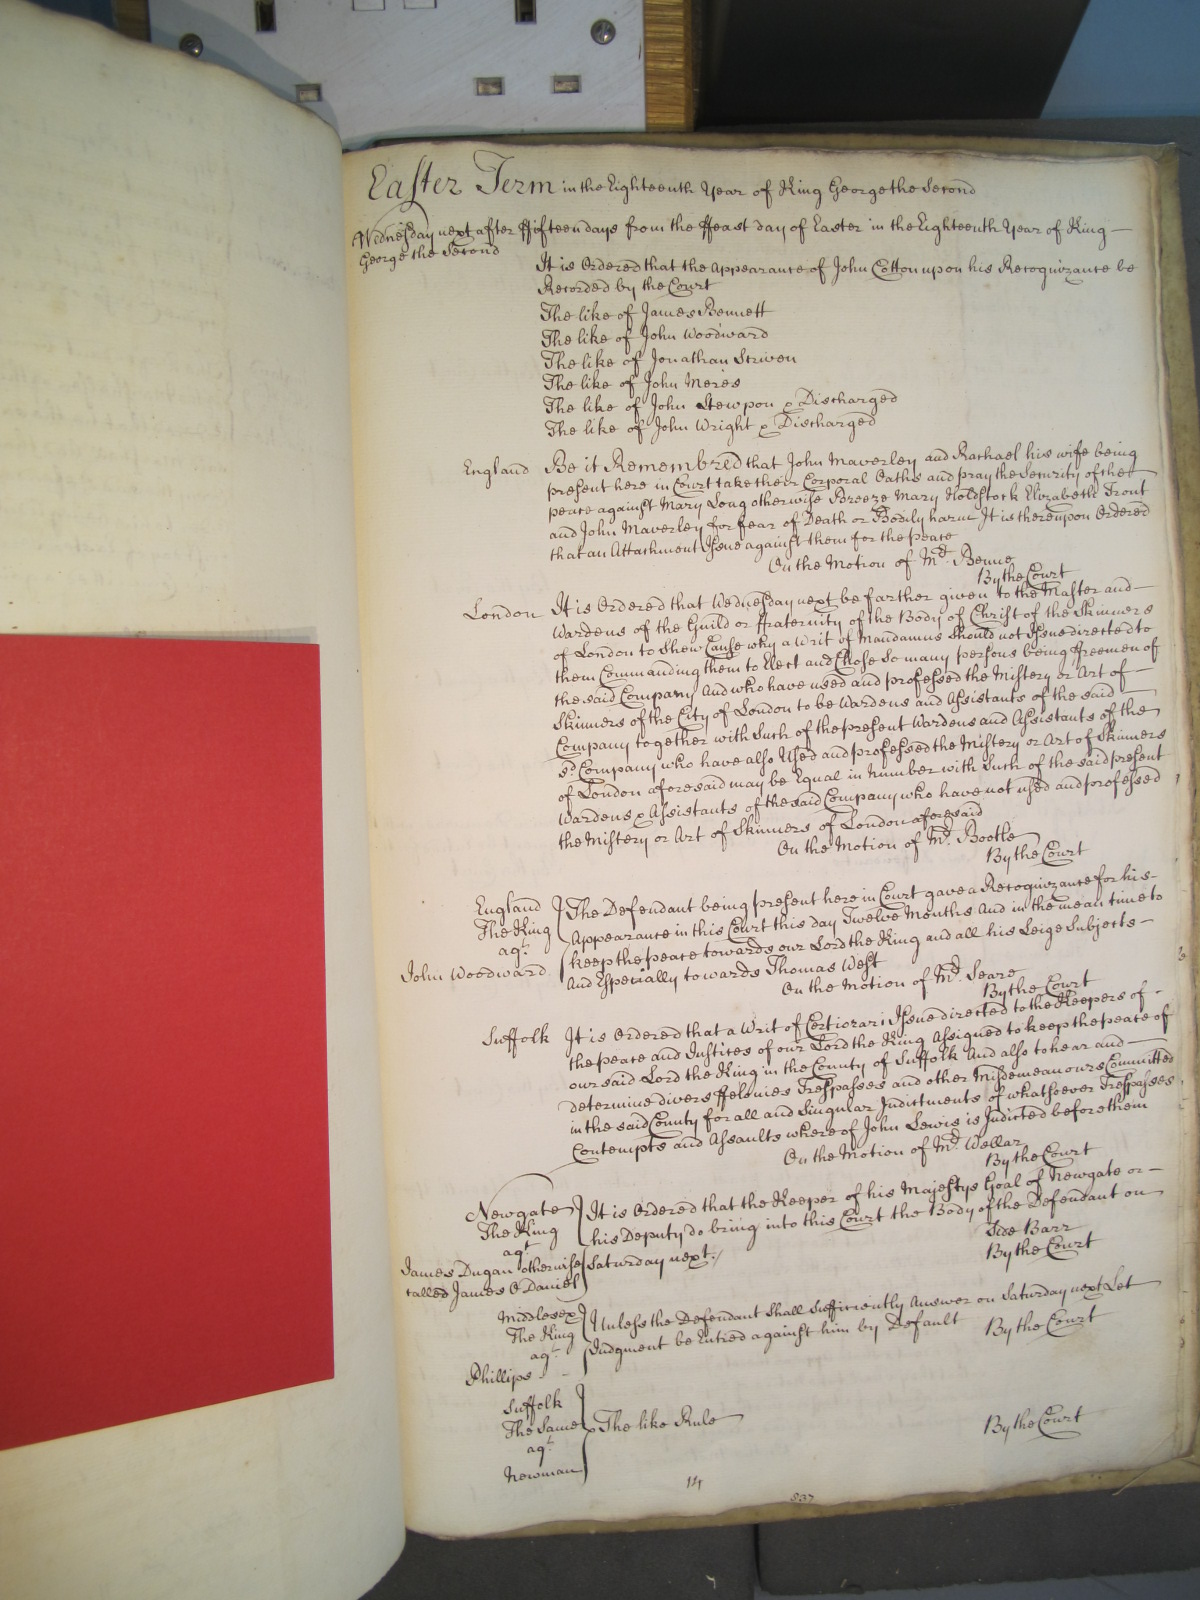 Easter Term in the Eighteenth Year of King George the Second
Wednesday next after ffifteen days from the ffeast day of Easter in the Eighteenth Year of King
George the Second
It is Ordered that the Appearance of John Cotton upon his Recognizance be
Recorded by the Court
The like of James Bennett
The like of John Woodward
The like of Jonathan Scriven
The like of John Meres
The like of John Stewpon & Discharged
The like of John Wright & Discharged
England Be it Remembred that John Maverley and Rachael his wife being
present here in Court take their Corporal Oaths and pray the Security of the
peace against Mary Long otherwise Breeze Mary Holdstock Elizabeth Trout
and John Maverley for fear of Death or Bodily harm It is thereupon Ordered
that an Attachment Issue against them for the peace
On the Motion of Mr. Benne
By the Court
London It is Ordered that Wednesday next be farther given to the Master and
Wardens of the Guild or Fraternity of the Body of Christ of the Skinners
of London to Shew Cause why a Writ of Mandamus Should not Issue directed to
them Commanding them to Elect and Chose So many persons being ffreemen of
the said Company And who have used and professed the Mistery or Art of
Skinners of the City of London to be Wardens and Assistants of the said
Company together with Such of the present Wardens and Assistants of the
sd. Company who have also Used and professed the Mistery or Art of Skinners
of London aforesaid may be Equal in Number with Such of the said present
Wardens & Assistants of the said Company who have not used and professed
the Mistery or Art of Skinners of London aforesaid
On the Motion of Mr. Bootle
By the Court
England The Defendant being present here in Court gave a Recognizance for his
The King Appearance in this Court this day Twelve Months And in the mean time to
agt. keep the peace towards our Lord the King and all his Leige Subjects
John Woodward And Especially towards Thomas West
On the Motion of Mr. Seare
By the Court
Suffolk It is Ordered that a Writ of Certiorari Issue directed to the Keepers of
the peace and Justices of our Lord the King Assigned to keep the peace of
our said Lord the King in the County of Suffolk And also to hear and
determine divers ffelonies Trespasses and other Misdemeanours Committed
in the said County for all and Singular Indictments of whatsoever Trespasses
Contempts and Assaults whereof John Lewis is Indicted before them
On the Motion of Mr. Wellar
By the Court
Newgate It is Ordered that the Keeper of his Majestys Goal of Newgate or
The King his Deputy do bring into this Court the Body of the Defendant on
agt. Side Barr
James Dugan otherwise Saturday next. By the Court
called James O Daniel
Middlesex Unless the Defendant Shall Sufficiently Answer on Saturday next Let
The King Judgment be Entied against him by Default By the Court
agt.
Phillips
Suffolk
The Same The like Rule By the Court
agt.
Newman
14
837